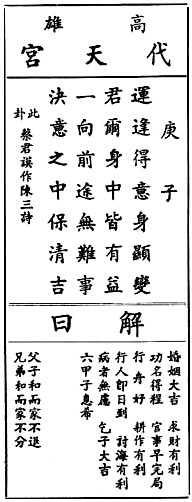 高雄
代天宮
庚子
運逢得意身顯變
君爾身中皆有益
一向前途無難事
決意之中保清吉
此卦 蔡君謨作陳三詩
解曰
婚姻大吉 求財有利
功名得程 官事早完局
行舟好 耕作有利
行人即日到 討海有利
病者無慮 乞子大吉
六甲子息希
父子和而家不退
兄弟和而家不分